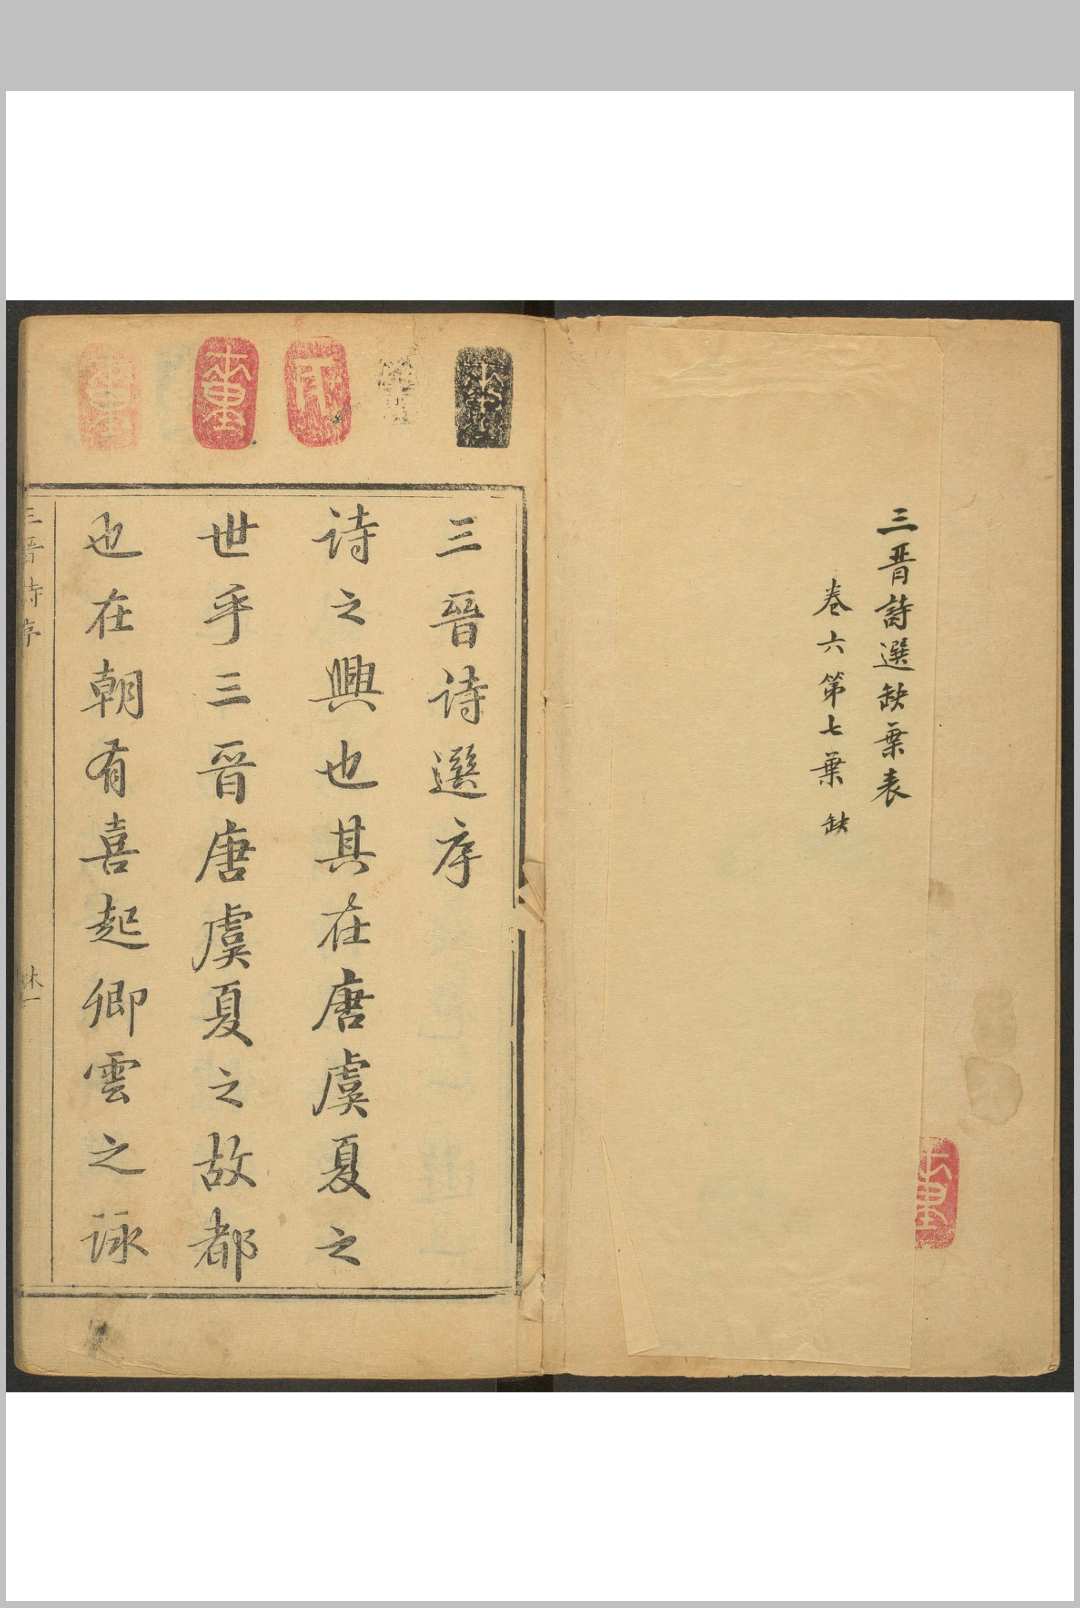 三晉詩選缺葉表
卷六第七葉 缺
三晉诗選序
诗之興也其在唐虞夏之
世乎三晋唐虞夏之故都
也在朝有喜起卿雲之詠
三晋詩序